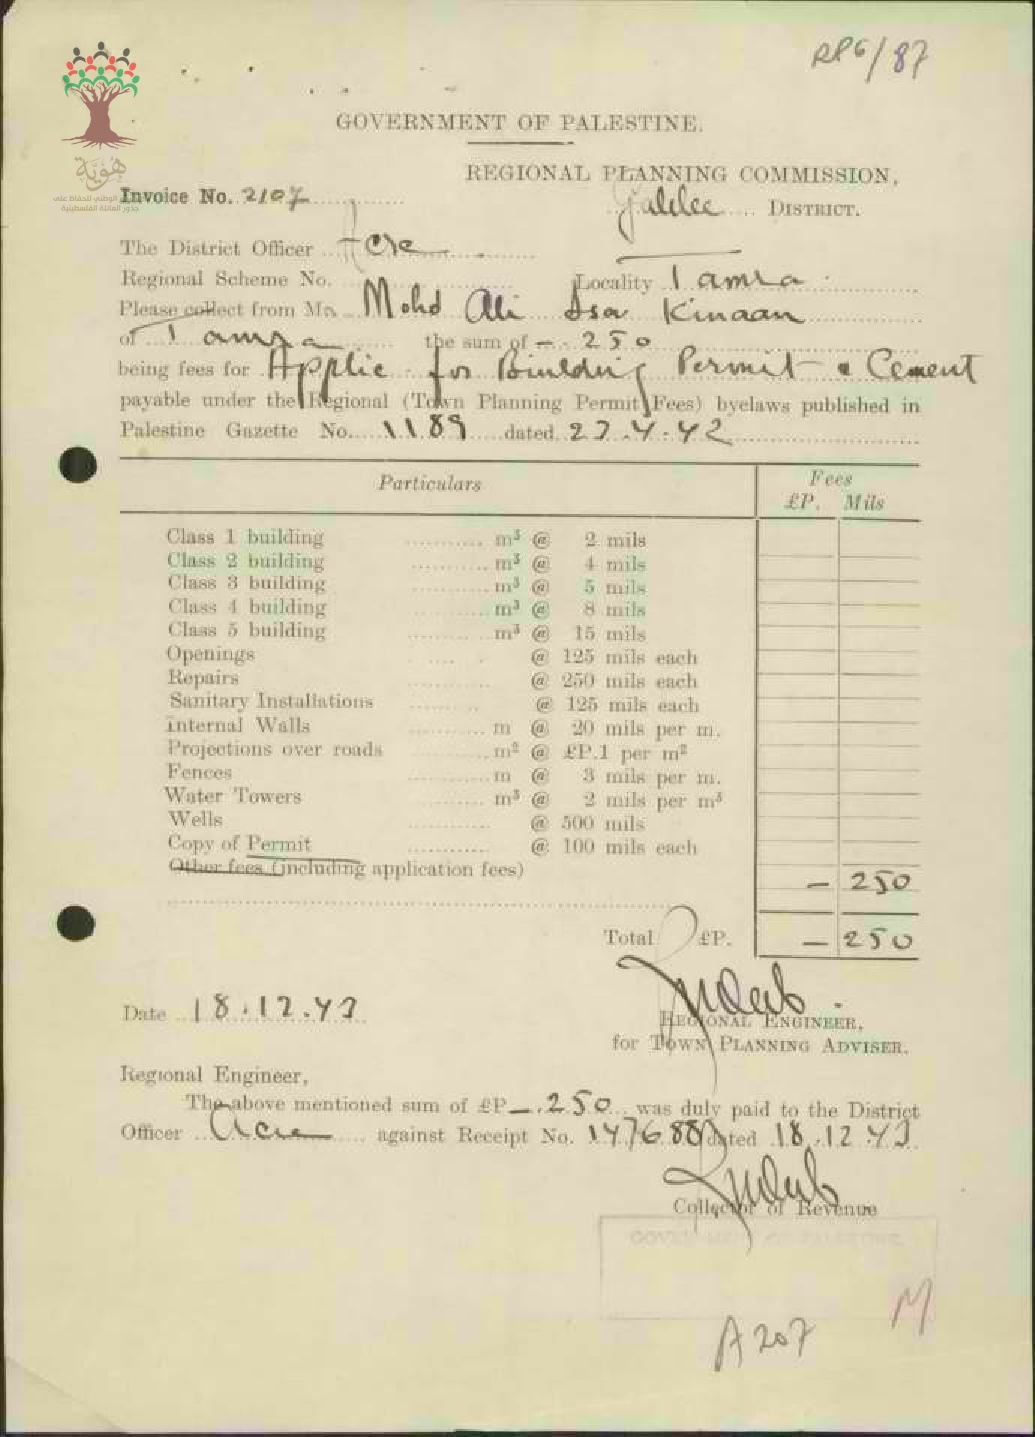 RP6/87
هُوِيَّة
GOVERNMENT OF PALESTINE.
REGIONAL PLANNING COMMISSION,
Invoice No. 2107
Galilee DISTRICT.
The District Officer Acre
Regional Scheme No. Locality Tamra
Please collect from Mr. Mohd Ali Isa Kinaan
of Tamra the sum of — 250
being fees for Applic. for Building Permit & Cement
payable under the Regional (Town Planning Permit Fees) byelaws published in
Palestine Gazette No. 1189 dated 23.4.42
Particulars Fees
£P. Mils
Class 1 building m³ @ 2 mils
Class 2 building m³ @ 4 mils
Class 3 building m³ @ 5 mils
Class 4 building m³ @ 8 mils
Class 5 building m³ @ 15 mils
Openings @ 125 mils each
Repairs @ 250 mils each
Sanitary Installations @ 125 mils each
Internal Walls m @ 20 mils per m.
Projections over roads m² @ £P.1 per m²
Fences m @ 3 mils per m.
Water Towers m³ @ 2 mils per m³
Wells @ 500 mils
Copy of Permit @ 100 mils each
Other fees (including application fees) — 250
Total £P. — 250
Date 18.12.43
REGIONAL ENGINEER,
for TOWN PLANNING ADVISER.
Regional Engineer,
The above mentioned sum of £P —.250 was duly paid to the District
Officer Acre against Receipt No. 147688 dated 18.12.43
Collector of Revenue
GOVERNMENT OF PALESTINE
M
A207